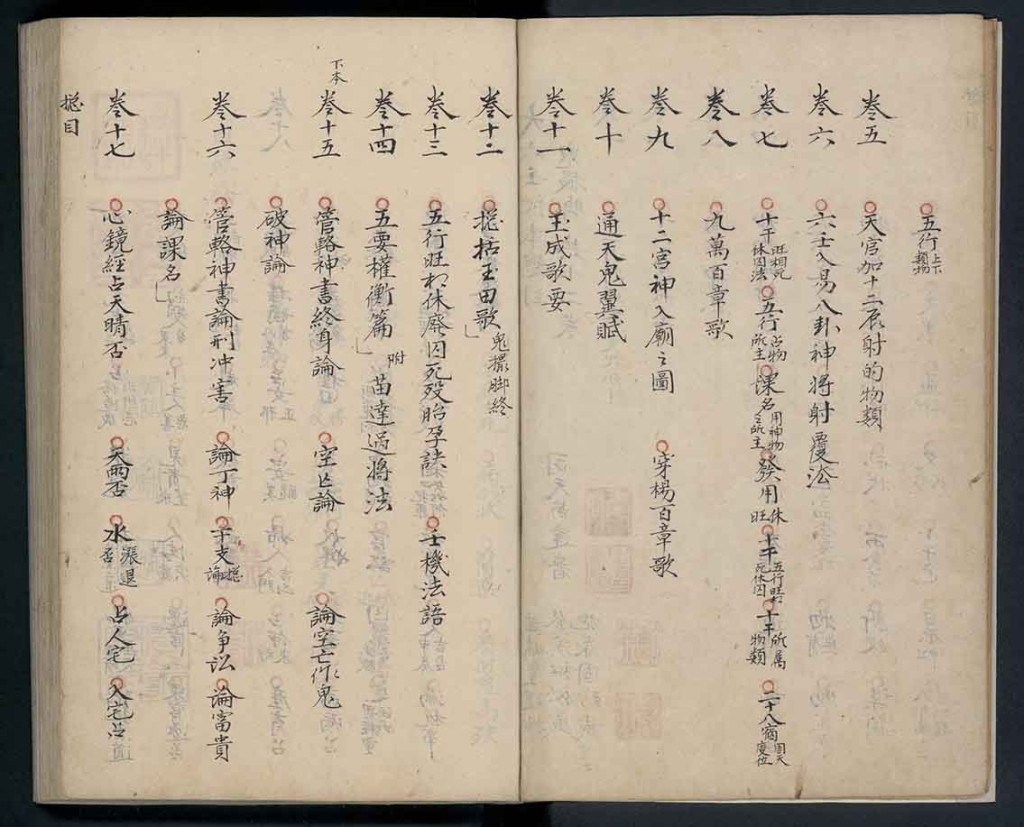 五行上下類物
卷五 天官加十二辰射的物類
卷六 六壬入易八卦神將射覆法
卷七 十干旺相死休囚法 五行占物所主 課名用神物之所主 發用休旺 十干五行旺相死休囚 十干所属物類 二十八宿周天度位
卷八 九萬百章歌
卷九 十二宮神入廟之圖 穿楊百章歌
卷十 通天鬼翼賦
卷十一 玉成歌要
卷十二 搃括玉田歌 鬼撮脚終
卷十三 五行旺相休廃囚死殁胎孕訣 壬機法語
卷十四 五要權衡篇 附 苗達過將法
下本 卷十五 管輅神書終身論 空亡論 論空亡作鬼
破神論
卷十六 管輅神書論刑冲害 論丁神 干支搃論 論争讼 論富貴
論課名
卷十七 心鏡經占天晴否 天雨否 水漲退否 占人宅 入宅占
搃目